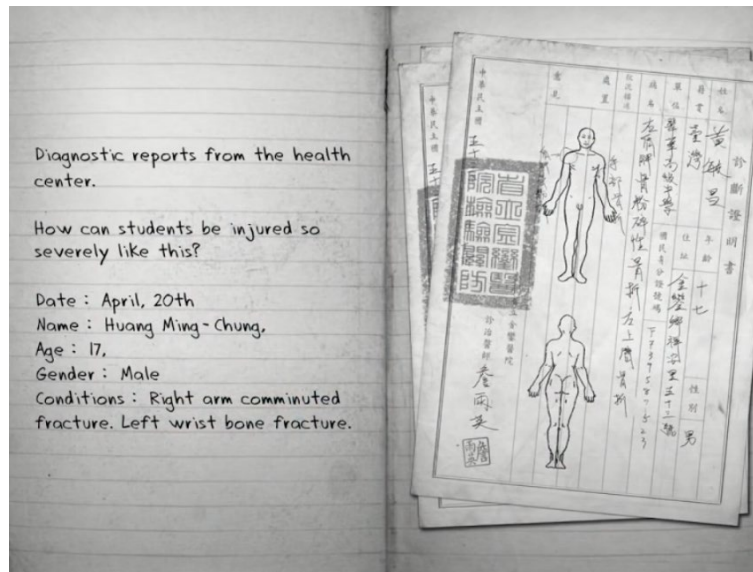 Diagnostic reports from the health
center.
How can students be injured so
severely like this?
Date : April, 20th
Name : Huang Ming-Chung,
Age : 17,
Gender : Male
Conditions : Right arm comminuted
fracture. Left wrist bone fracture.
診斷證明書
姓名 黃敏昌 年齡 十七 性別 男
籍貫 臺灣 住址
單位 翠華高級中學 國民身分證號碼
病名 骨粉碎性骨折 骨折
處置
意見
金鑾醫院
診治醫師
中華民國 五十
中華民國 五十